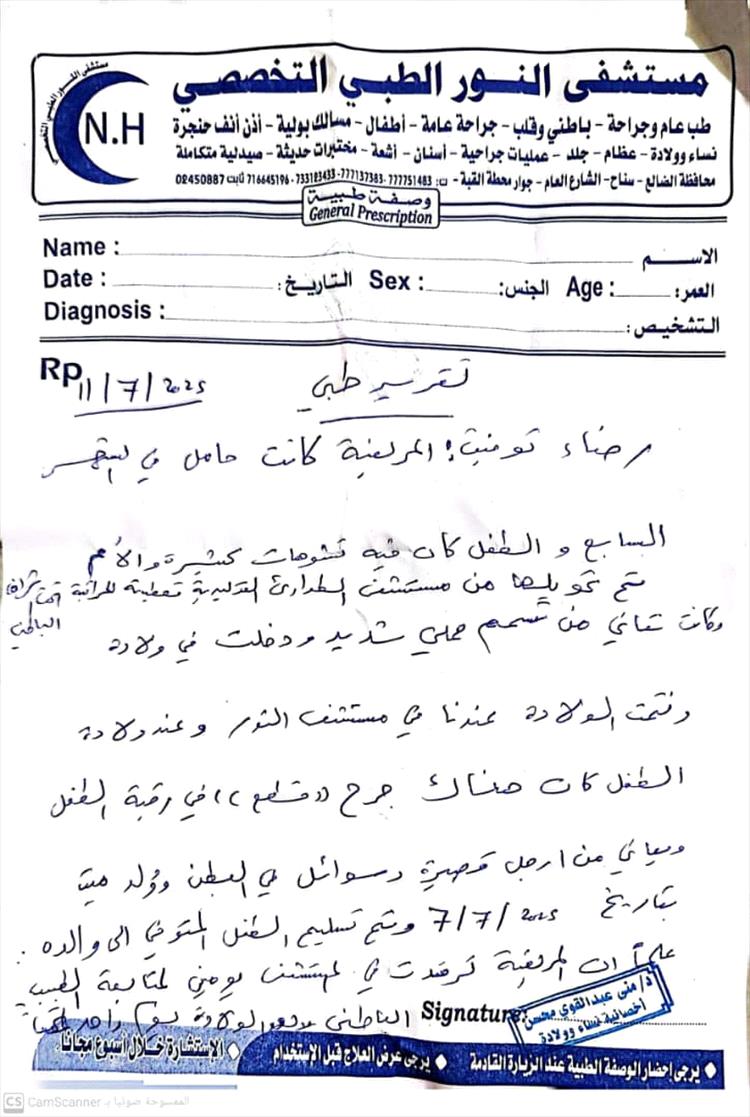 مستشفى النور الطبي التخصصي
مستشفى النور الطبي التخصصي
N.H
طب عام وجراحة - باطني وقلب - جراحة عامة - أطفال - مسالك بولية - أذن أنف حنجرة
نساء وولادة - عظام - جلد - عمليات جراحية - أسنان - أشعة - مختبرات حديثة - صيدلية متكاملة
محافظة الضالع - سناح - الشارع العام - جوار محطة القبة - ت: 777751483-777137383-733183433-716645196 ثابت 02450887
وصفة طبية
General Prescription
Name : الاسم
Date : التاريخ: Sex : الجنس: Age : العمر:
Diagnosis : التشخيص:
Rp
11/7/2025 تقرير طبي
المريضة كانت حامل في الشهر
السابع و الطفل كان فيه تشوهات كثيرة والأم
تم تحويلها من مستشفى الطوارئ التوليدية للمراقبة تحت اشراف
الباطني
وكانت تعاني من تسمم حملي شديد ودخلت في ولادة
وتمت الولادة عندنا في مستشفى النور وعند ولادة
الطفل كان هناك جرح ((قطع)) في رقبة الطفل
ويعاني من ارجل قصيرة وسوائل في البطن وولد ميت
بتاريخ 7/7/2025 وتم تسليم الطفل المتوفي الى والده.
علماً ان المريضة ترقدت في المستشفى يومين لمتابعة الطبيب
الباطني
Signature:
د/ منى عبدالقوي محسن
أخصائية نساء وولادة
يرجى إحضار الوصفة الطبية عند الزيارة القادمة ◆ يرجى عرض العلاج قبل الإستخدام ◆ الإستشارة خلال أسبوع مجاناً
CS CamScanner الممسوحة ضوئيا بـ